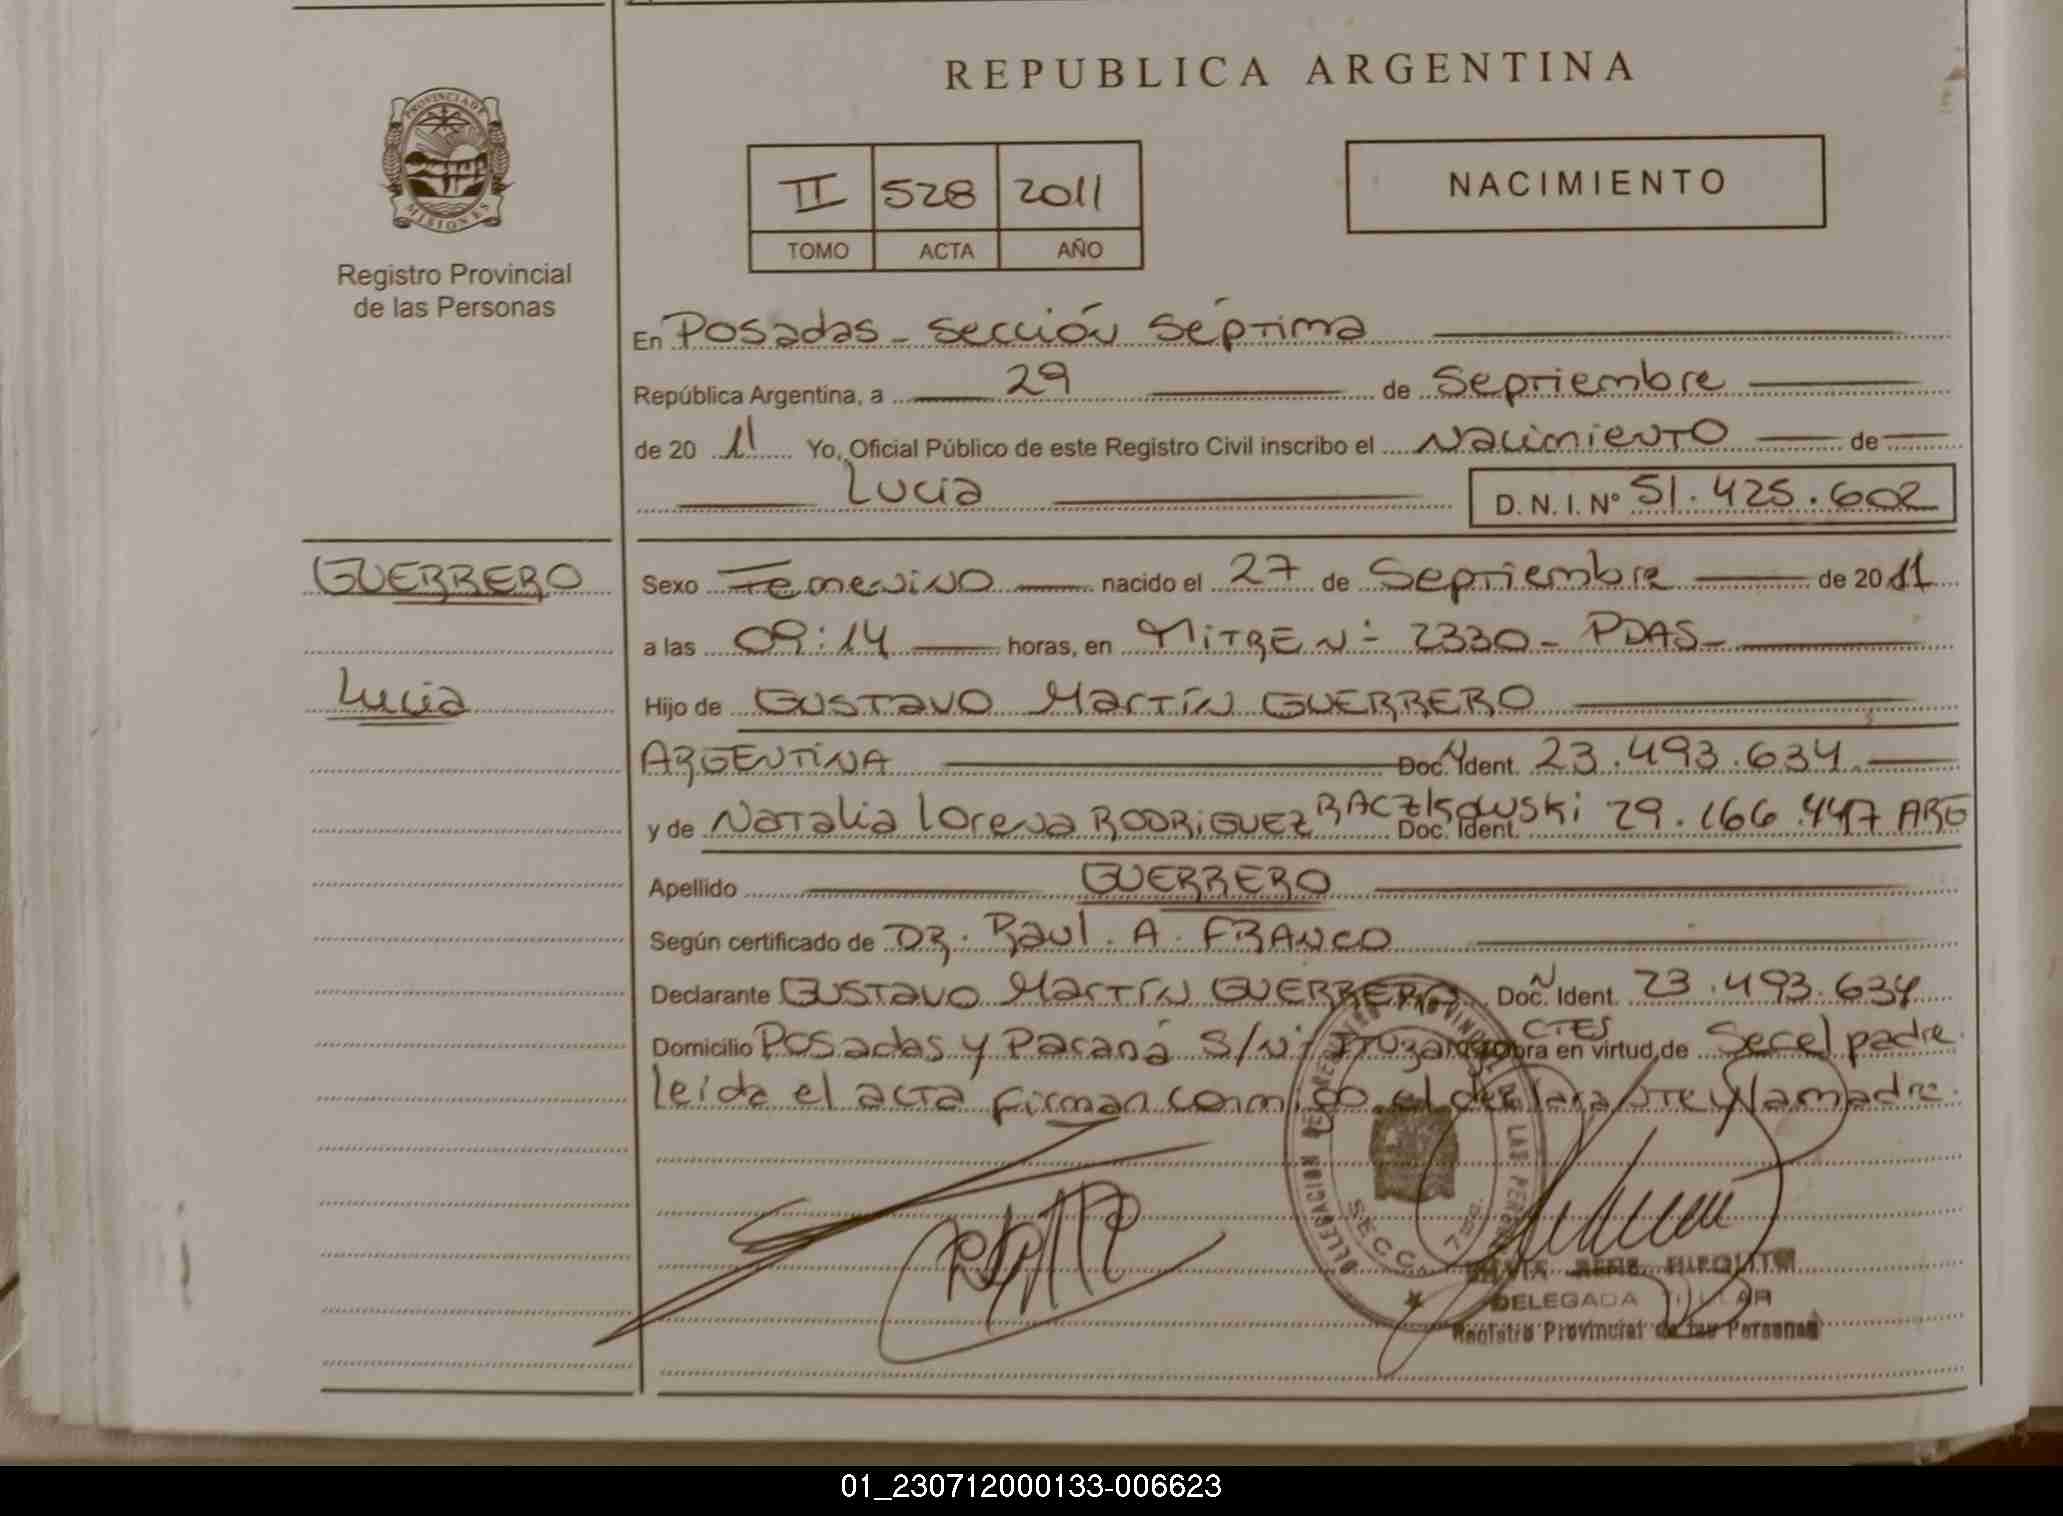 REPUBLICA ARGENTINA
PROVINCIA DE
MISIONES
Registro Provincial
de las Personas
II 528 2011
TOMO ACTA AÑO
NACIMIENTO
En Posadas - Sección Séptima
República Argentina, a 29 de Septiembre
de 20 11 Yo, Oficial Público de este Registro Civil inscribo el Nacimiento de
Lucia D. N. I. Nº 51.425.602
GUERRERO
Lucia
Sexo Femenino nacido el 27 de Septiembre de 20 11
a las 09:14 horas, en MITRE Nº 2330 - PDAS -
Hijo de GUSTAVO Martín GUERRERO
ARGENTINA Doc. Ident. 23.493.634
y de Natalia Lorena RODRIGUEZ RACZKOWSKI Doc. Ident. 29.166.447 ARG
Apellido GUERRERO
Según certificado de DR. Raul. A. FRANCO
Declarante GUSTAVO Martín GUERRERO Doc. Ident. 23.493.634
Domicilio Posadas y Paraná S/N Ituzaingo CTES obra en virtud de Ser el padre.
Leida el acta firman conmigo el declarante y la madre.
DELEGACION DEL REGISTRO PROVINCIAL DE LAS PERSONAS
SECC. 7ma.
HIPOLITO
DELEGADA TITULAR
Registro Provincial de las Personas
01_230712000133-006623